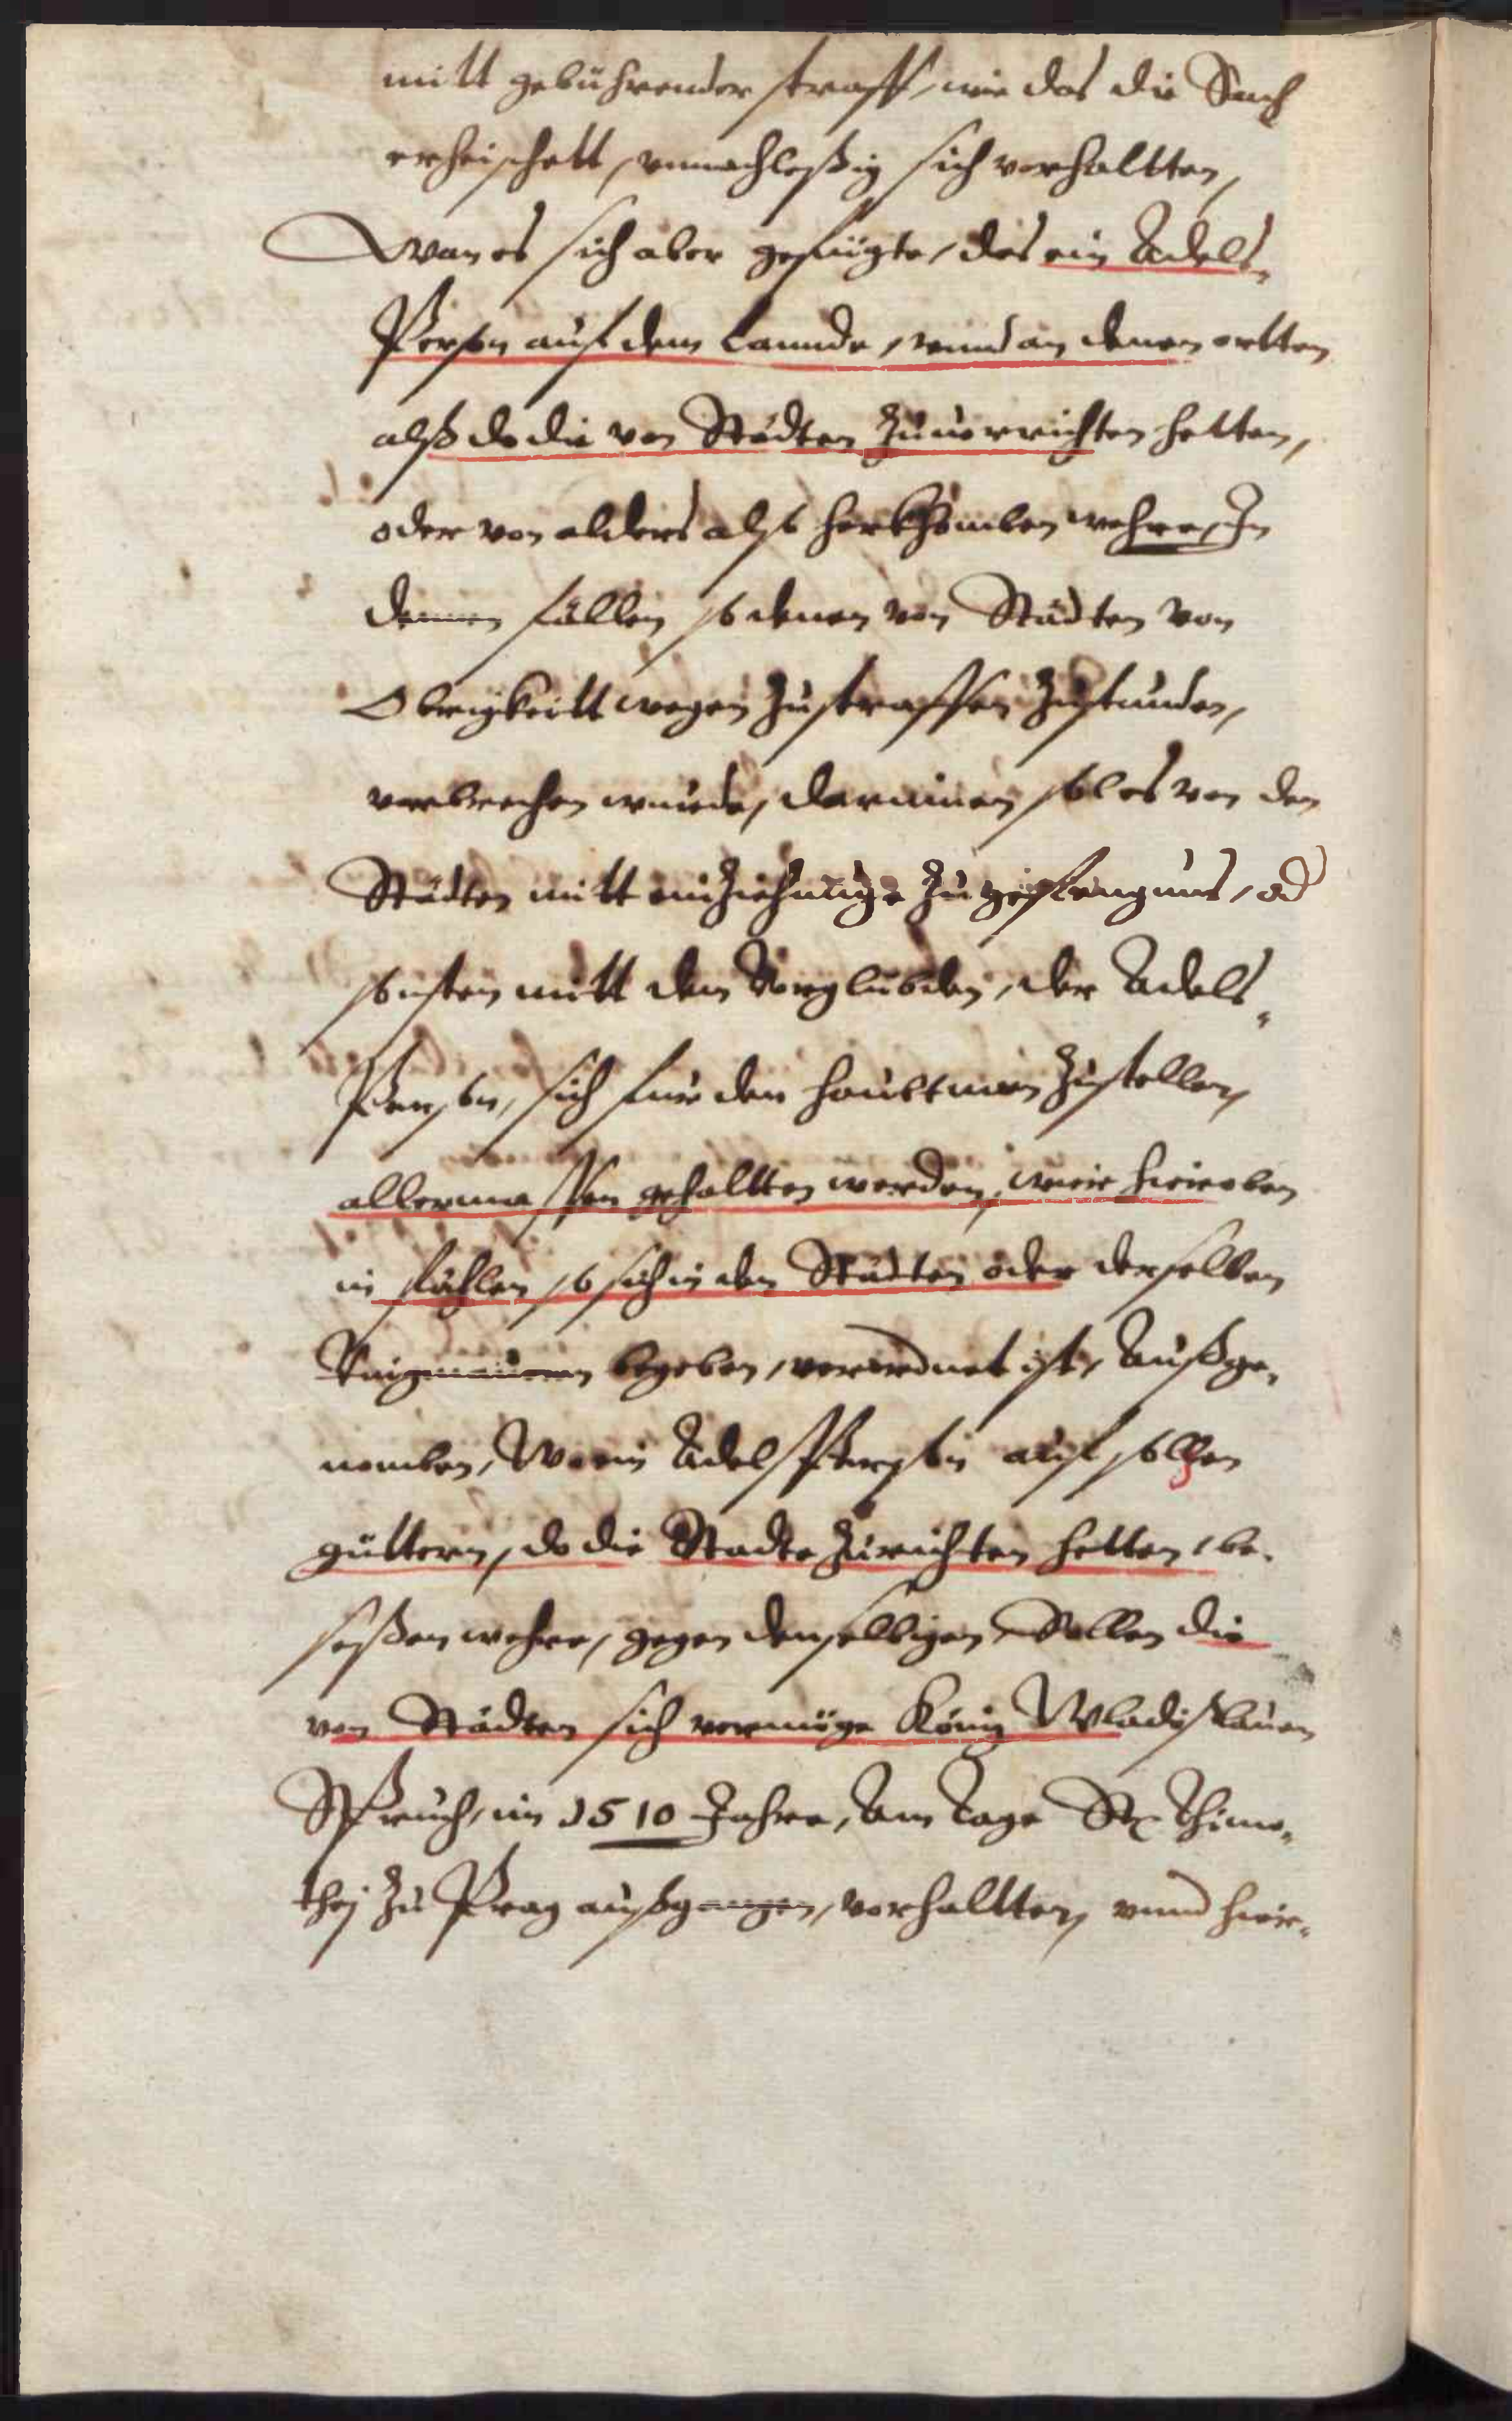 mitt gebührender straff, wie das die Sach
erheischett, vnnachleßig sich verhaltten,
Wan es sich aber gefügte, das ein Adels¬
Person auf dem Lannde, vnnd an denen ortten
alß do die von Städten zuuorrichten hetten,
oder von alders also herkhomben wehre, In
dennen fällen so denen von Städten von
Obrigkeitt wegen zustraffen zustunden,
verbrechen wurde, darinnen sol es von den
Städten mitt einziehunge zu gefengnus, od
sonsten mitt den Vorglübden, der Adels¬
Person, sich fur den haubtman zustellen,
allermassen gehaltten werden, wie hieroben
in fählen so sich in den Städten oder derselben
Ringmauren begeben, verordnet ist, Außge¬
nomben, Wo ein Adelspersohn auf solchen
güttern, do die Stadte zurichten hetten, be¬
seßen wehre, gegen denselbigen Sollen die
von Städten sich vermöge König Wladißlauen
Spruch, im 1510 Jahre, Am tage St Thimo¬
thej zu Prag außgangen, verhaltten, vnnd hier¬